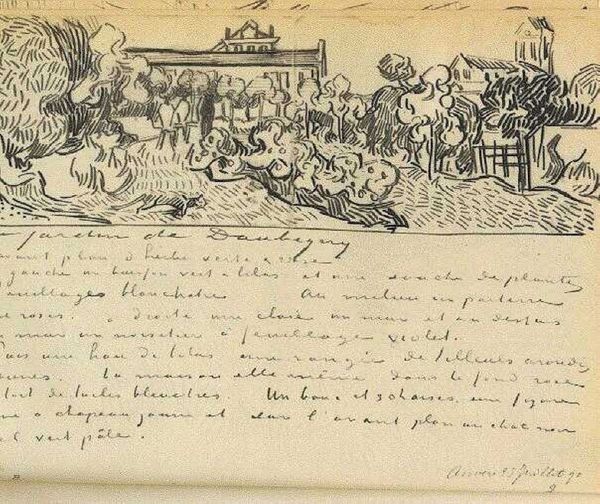 jardin de Daubigny
avant plan d'herbe verte & rose
gauche un buisson vert & lilas et une souche de plantes
feuillages blanchatre Au milieu un parterre
de roses. a droite une claie un mur et au dessus
mur un noisetier à feuillage violet.
Puis une haie de lilas une rangée de tilleuls arondis
jaunes. La maison elle même dans le fond rose
toit de tuiles bleuatres. Un banc et 3 chaises une figure
à chapeau jaune et sur l'avant plan un chat noir
vert pâle.
Auvers juillet 90